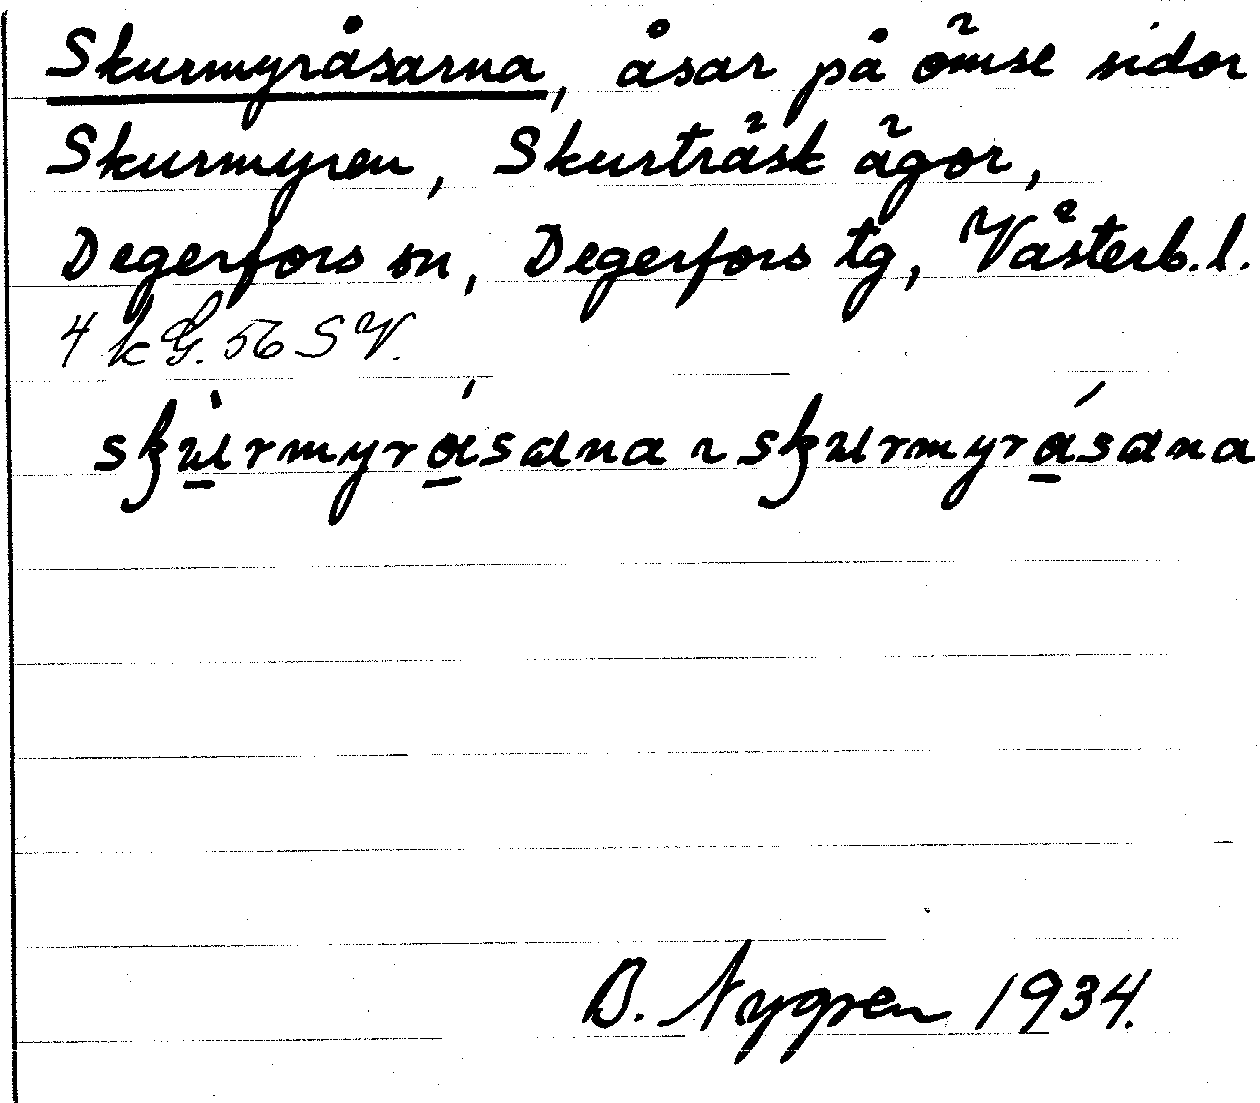 Skurmyråsarna, åsar på ömse sidor
Skurmyren, Skurträsk ägor,
Degerfors sn, Degerfors tg, Västerb. l.
4 k G. 56 SV.
skùrmyrásana ~ skurmyrásana
B. Nygren 1934.